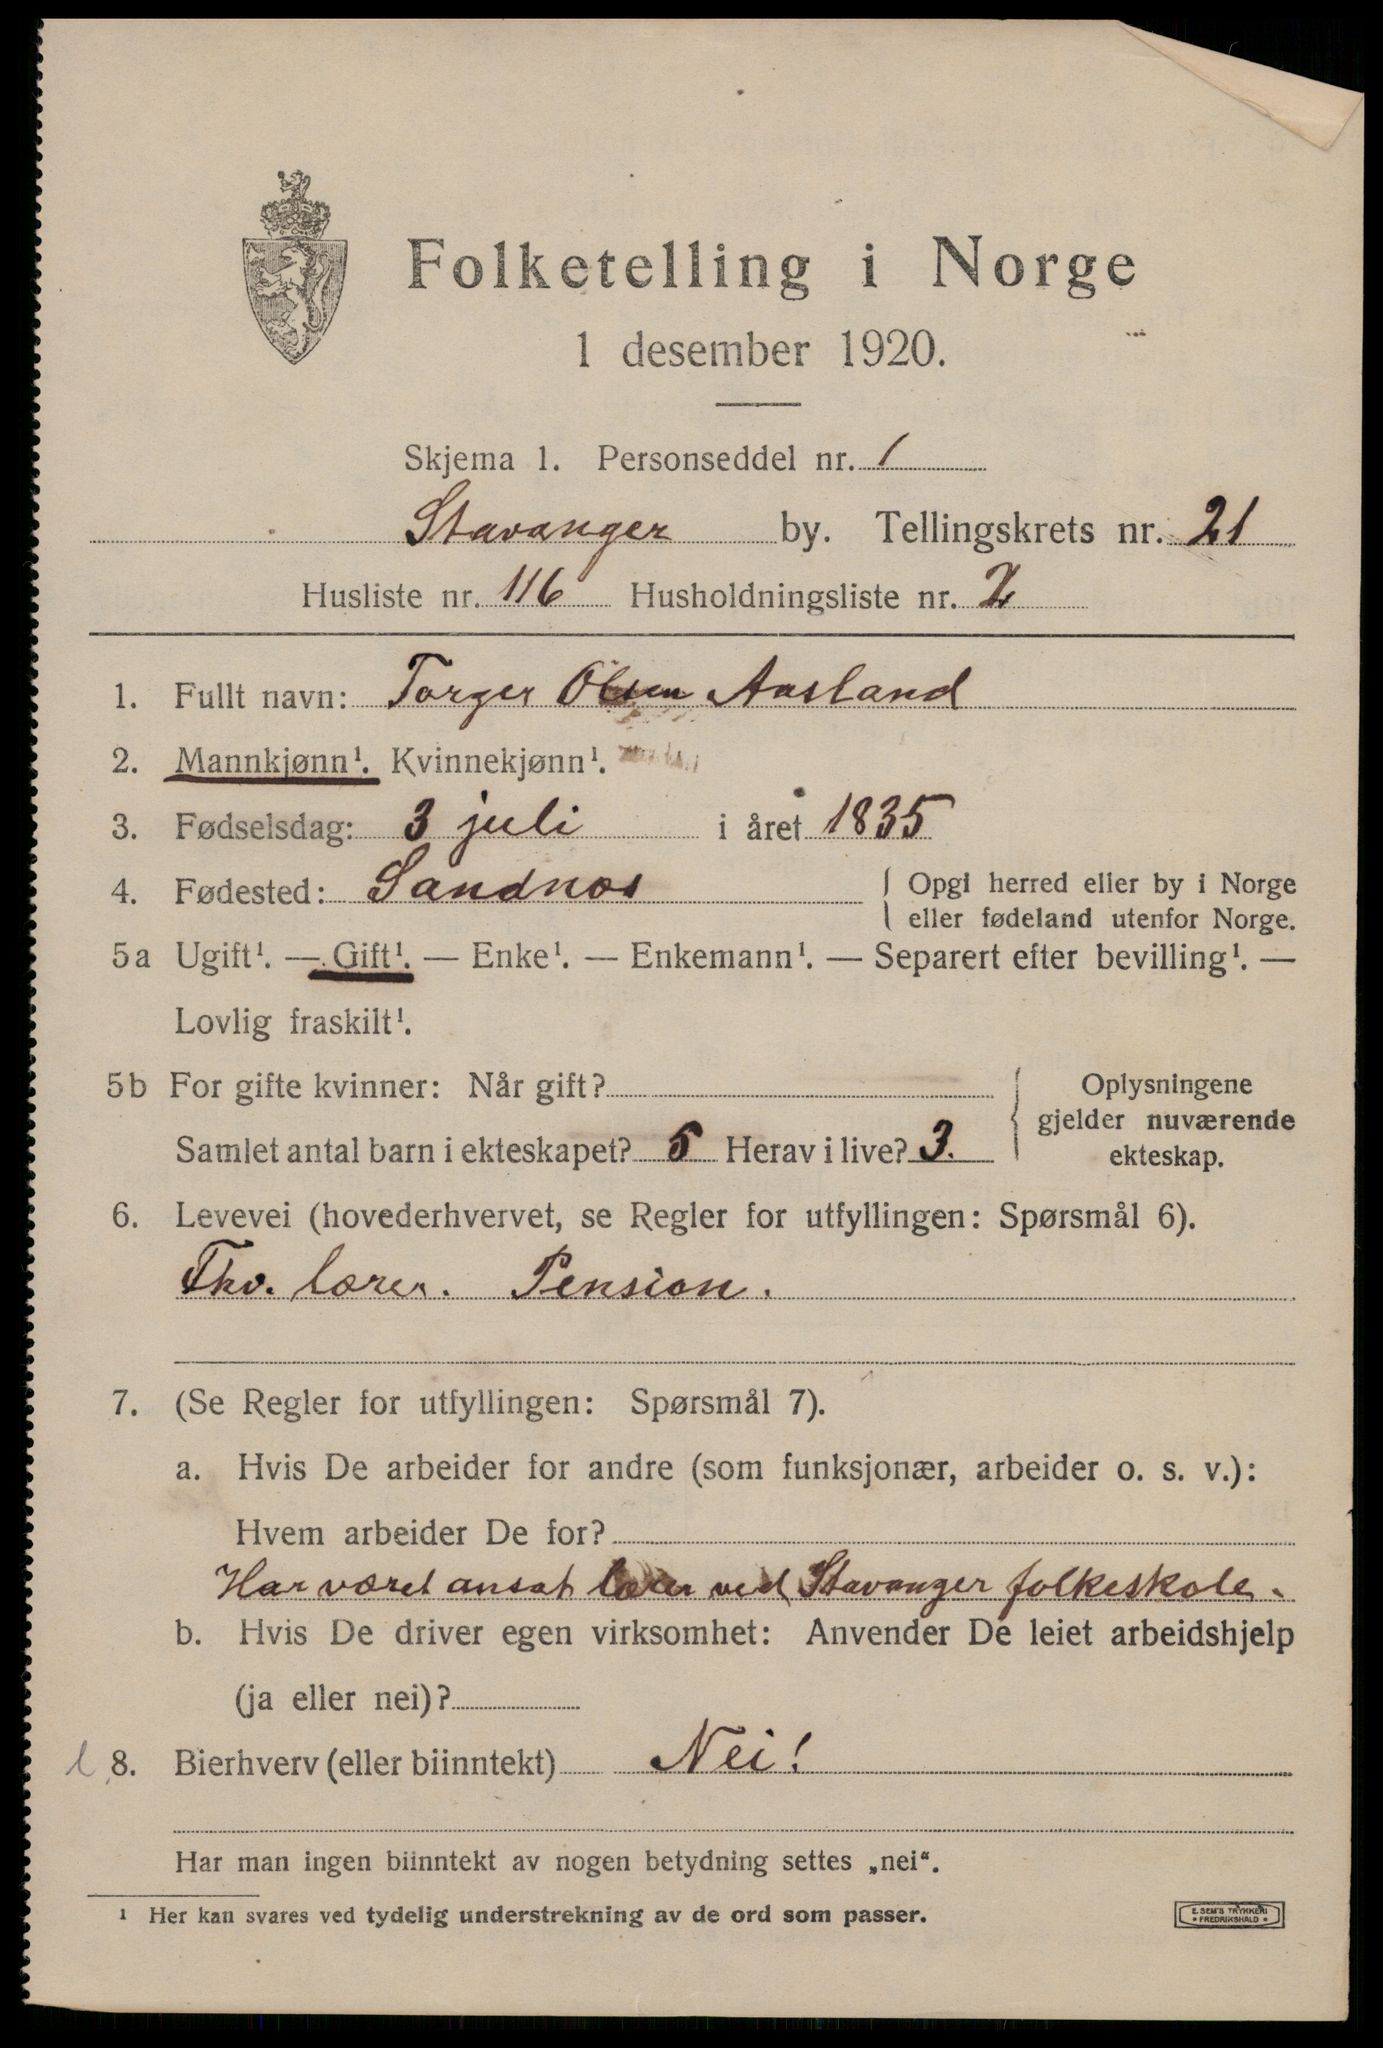 Folketelling i Norge
1 desember 1920.
Skjema 1. Personseddel nr. 1
Stavanger by. Tellingskrets nr. 21
Husliste nr. 116 Husholdningsliste nr. 2
1. Fullt navn: Torger Olsen Aasland
2. Mannkjønn¹. Kvinnekjønn¹.
3. Fødselsdag: 3 juli i året 1835
4. Fødested: Sandnes { Opgi herred eller by i Norge
eller fødeland utenfor Norge.
5a Ugift¹. — Gift¹. — Enke¹. — Enkemann¹. — Separert efter bevilling¹. —
Lovlig fraskilt¹.
5b For gifte kvinner: Når gift? { Oplysningene
gjelder nuværende
Samlet antal barn i ekteskapet? 5 Herav i live? 3. ekteskap.
6. Levevei (hovederhvervet, se Regler for utfyllingen: Spørsmål 6).
Fhv. lærer. Pension.
7. (Se Regler for utfyllingen: Spørsmål 7).
a. Hvis De arbeider for andre (som funksjonær, arbeider o. s. v.):
Hvem arbeider De for?
Har været ansat lærer ved Stavanger folkeskole.
b. Hvis De driver egen virksomhet: Anvender De leiet arbeidshjelp
(ja eller nei)?
8. Bierhverv (eller biinntekt) Nei!
Har man ingen biinntekt av nogen betydning settes „nei“.
¹ Her kan svares ved tydelig understrekning av de ord som passer.
E. SEM'S TRYKKERI
* FREDRIKSHALD *